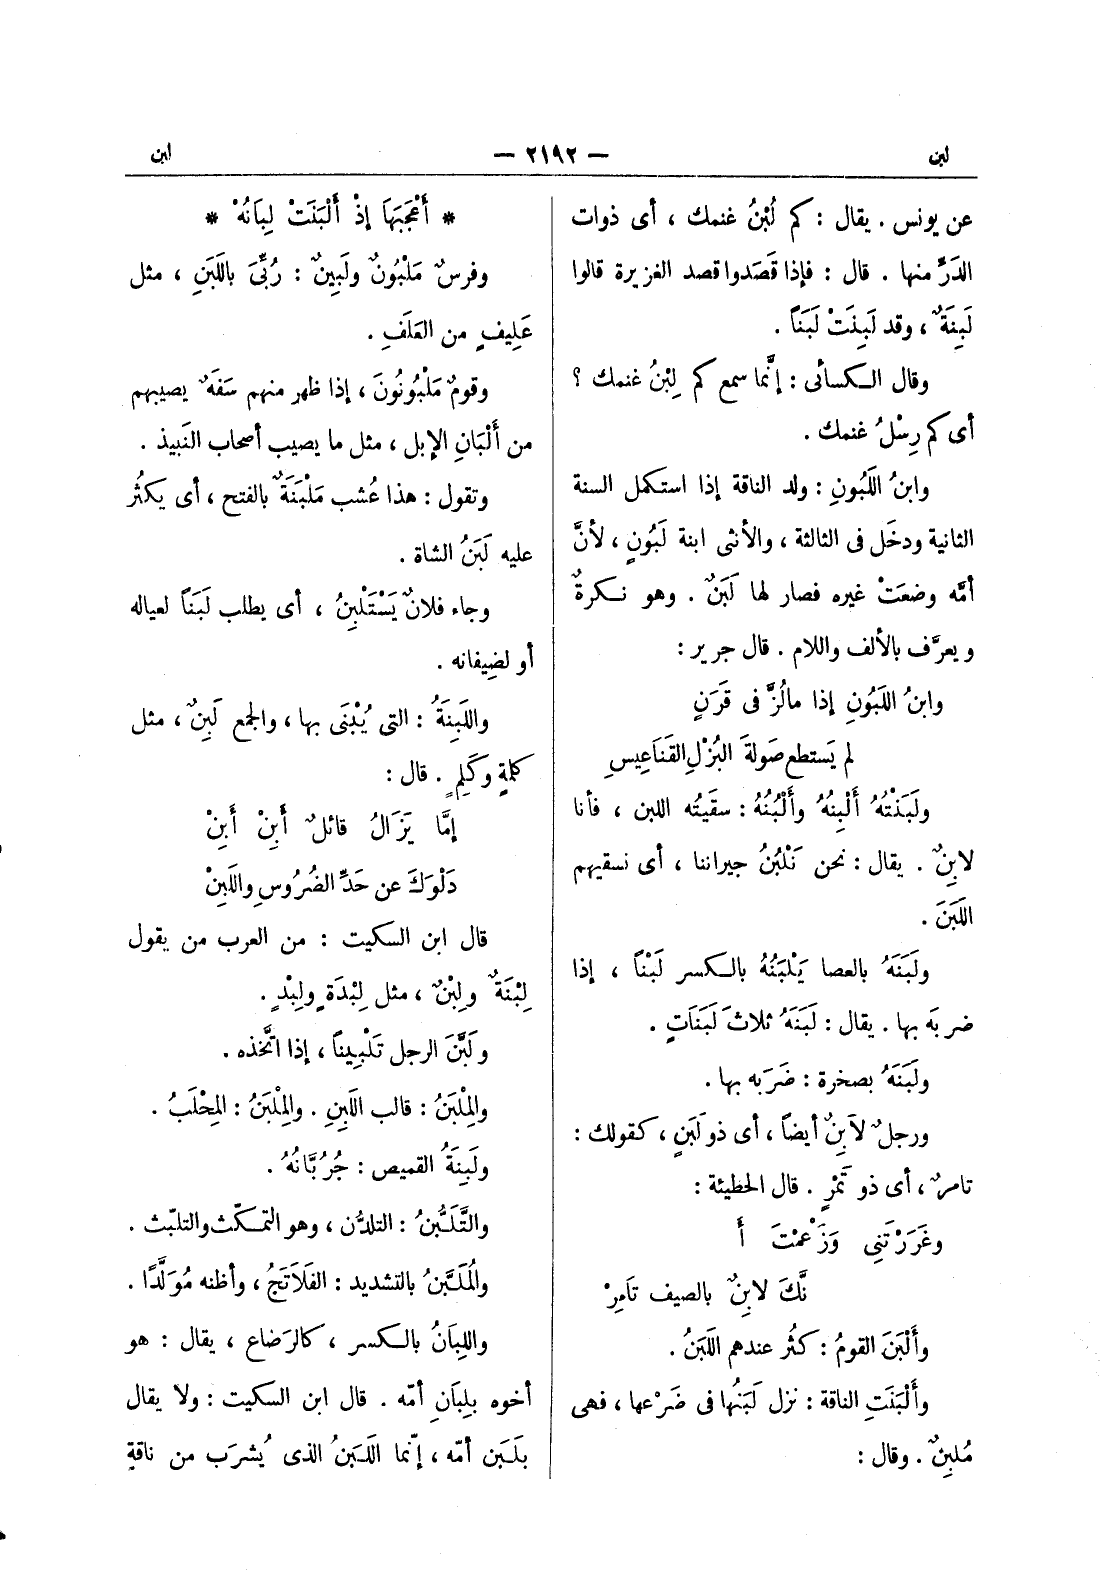 لبن
— ٢١٩٢ —
لبن
عن يونس . يقال : كم لُبْنُ غنمك ، أى ذوات
الدَرِّ منها . قال : فإذا قَصَدوا قصد الغزيرة قالوا
لَبِنَةٌ ، وقد لَبِنَتْ لَبَناً .
وقال الكسائى : إنَّما سمع كم لِبْنُ غنمك ؟
أى كم رِسْلُ غنمك .
وابنُ اللَبُونِ : ولد الناقة إذا استكمل السنة
الثانية ودخَل فى الثالثة ، والأنثى ابنة لَبُونٍ ، لأنَّ
أمَّه وضعَتْ غيره فصار لها لَبَنٌ . وهو نكرةٌ
ويعرَّف بالألف واللام . قال جرير :
وابنُ اللَبُونِ إذا مالُزَّ فى قَرَنٍ
لم يَستطع صَولةَ البُزْلِ القَنَاعِيسِ
ولَبَنْتُهُ أَلْبِنُهُ وأَلْبُنُهُ : سقيتُه اللبن ، فأنا
لابِنٌ . يقال : نحن نَلْبُنُ جيراننا ، أى نسقيهم
اللَبَنَ .
ولَبَنَهُ بالعصا يَلْبِنُهُ بالكسر لَبْناً ، إذا
ضربَه بها . يقال : لَبَنَهُ ثلاثَ لَبَنَاتٍ .
ولَبَنَهُ بصخرة : ضَرَبه بها .
ورجلٌ لاَبِنٌ أيضاً ، أى ذو لَبَنٍ ، كقولك :
تامرٌ ، أى ذو تَمْرٍ . قال الحطيئة :
وغَرَرْتَنِى وَزَعْمْتَ أَ
نَّكَ لابِنٌ بالصيف تَامِرْ
وأَلْبَنَ القومُ : كثُر عندهم اللَبَنُ .
وأَلْبَنَتِ الناقة : نزل لَبَنُها فى ضَرْعها ، فهى
مُلبِنٌ . وقال :
* أَعْجَبَهَا إذْ أَلْبَنَتْ لِبَانُهْ *
وفرسٌ مَلْبُونٌ ولَبِينٌ : رُبِّىَ باللَبَنِ ، مثل
عَلِيفٍ من العَلَفِ .
وقومٌ مَلْبُونُونَ ، إذا ظهر منهم سَفَهٌ يصيبهم
من أَلْبَانِ الإبل ، مثل ما يصيب أصحاب النَبيذ .
وتقول : هذا عُشب مَلْبَنَةٌ بالفتح ، أى يكثُر
عليه لَبَنُ الشاة .
وجاء فلانٌ يَسْتَلْبِنُ ، أى يطلب لَبَناً لعياله
أو لضِيفانه .
واللَبِنَةُ : التى يُبْنَى بها ، والجمع لَبِنٌ ، مثل
كلمةٍ وكَلِمٍ . قال :
إمَّا يَزَالُ قائلٌ أَبِنْ أَبِنْ
دَلْوَكَ عن حَدِّ الضُرُوسِ واللَبِنْ
قال ابن السكيت : من العرب من يقول
لِبْنَةٌ ولِبْنٌ ، مثل لِبْدَةٍ ولِبْدٍ .
ولَبَّنَ الرجل تَلْبِيناً ، إذا اتَّخذه .
والمِلْبَنُ : قالب اللَبِنِ . والمِلْبَنُ : المِحْلَبُ .
ولَبِنَةُ القميص : جُرُبَّانُهُ .
والتَّلَبُّنُ : التلدُّن ، وهو التمكّث والتلبّث .
والمُلَبَّنُ بالتشديد : الفَلاَتَجُ ، وأظنه مُوَلَّدًا .
واللِبَانُ بالكسر ، كالرَضاع ، يقال : هو
أخوه بلِبَانِ أمّه . قال ابن السكيت : ولا يقال
بلَبَن أمّه ، إنّما اللَبَنُ الذى يُشرَب من ناقةٍ